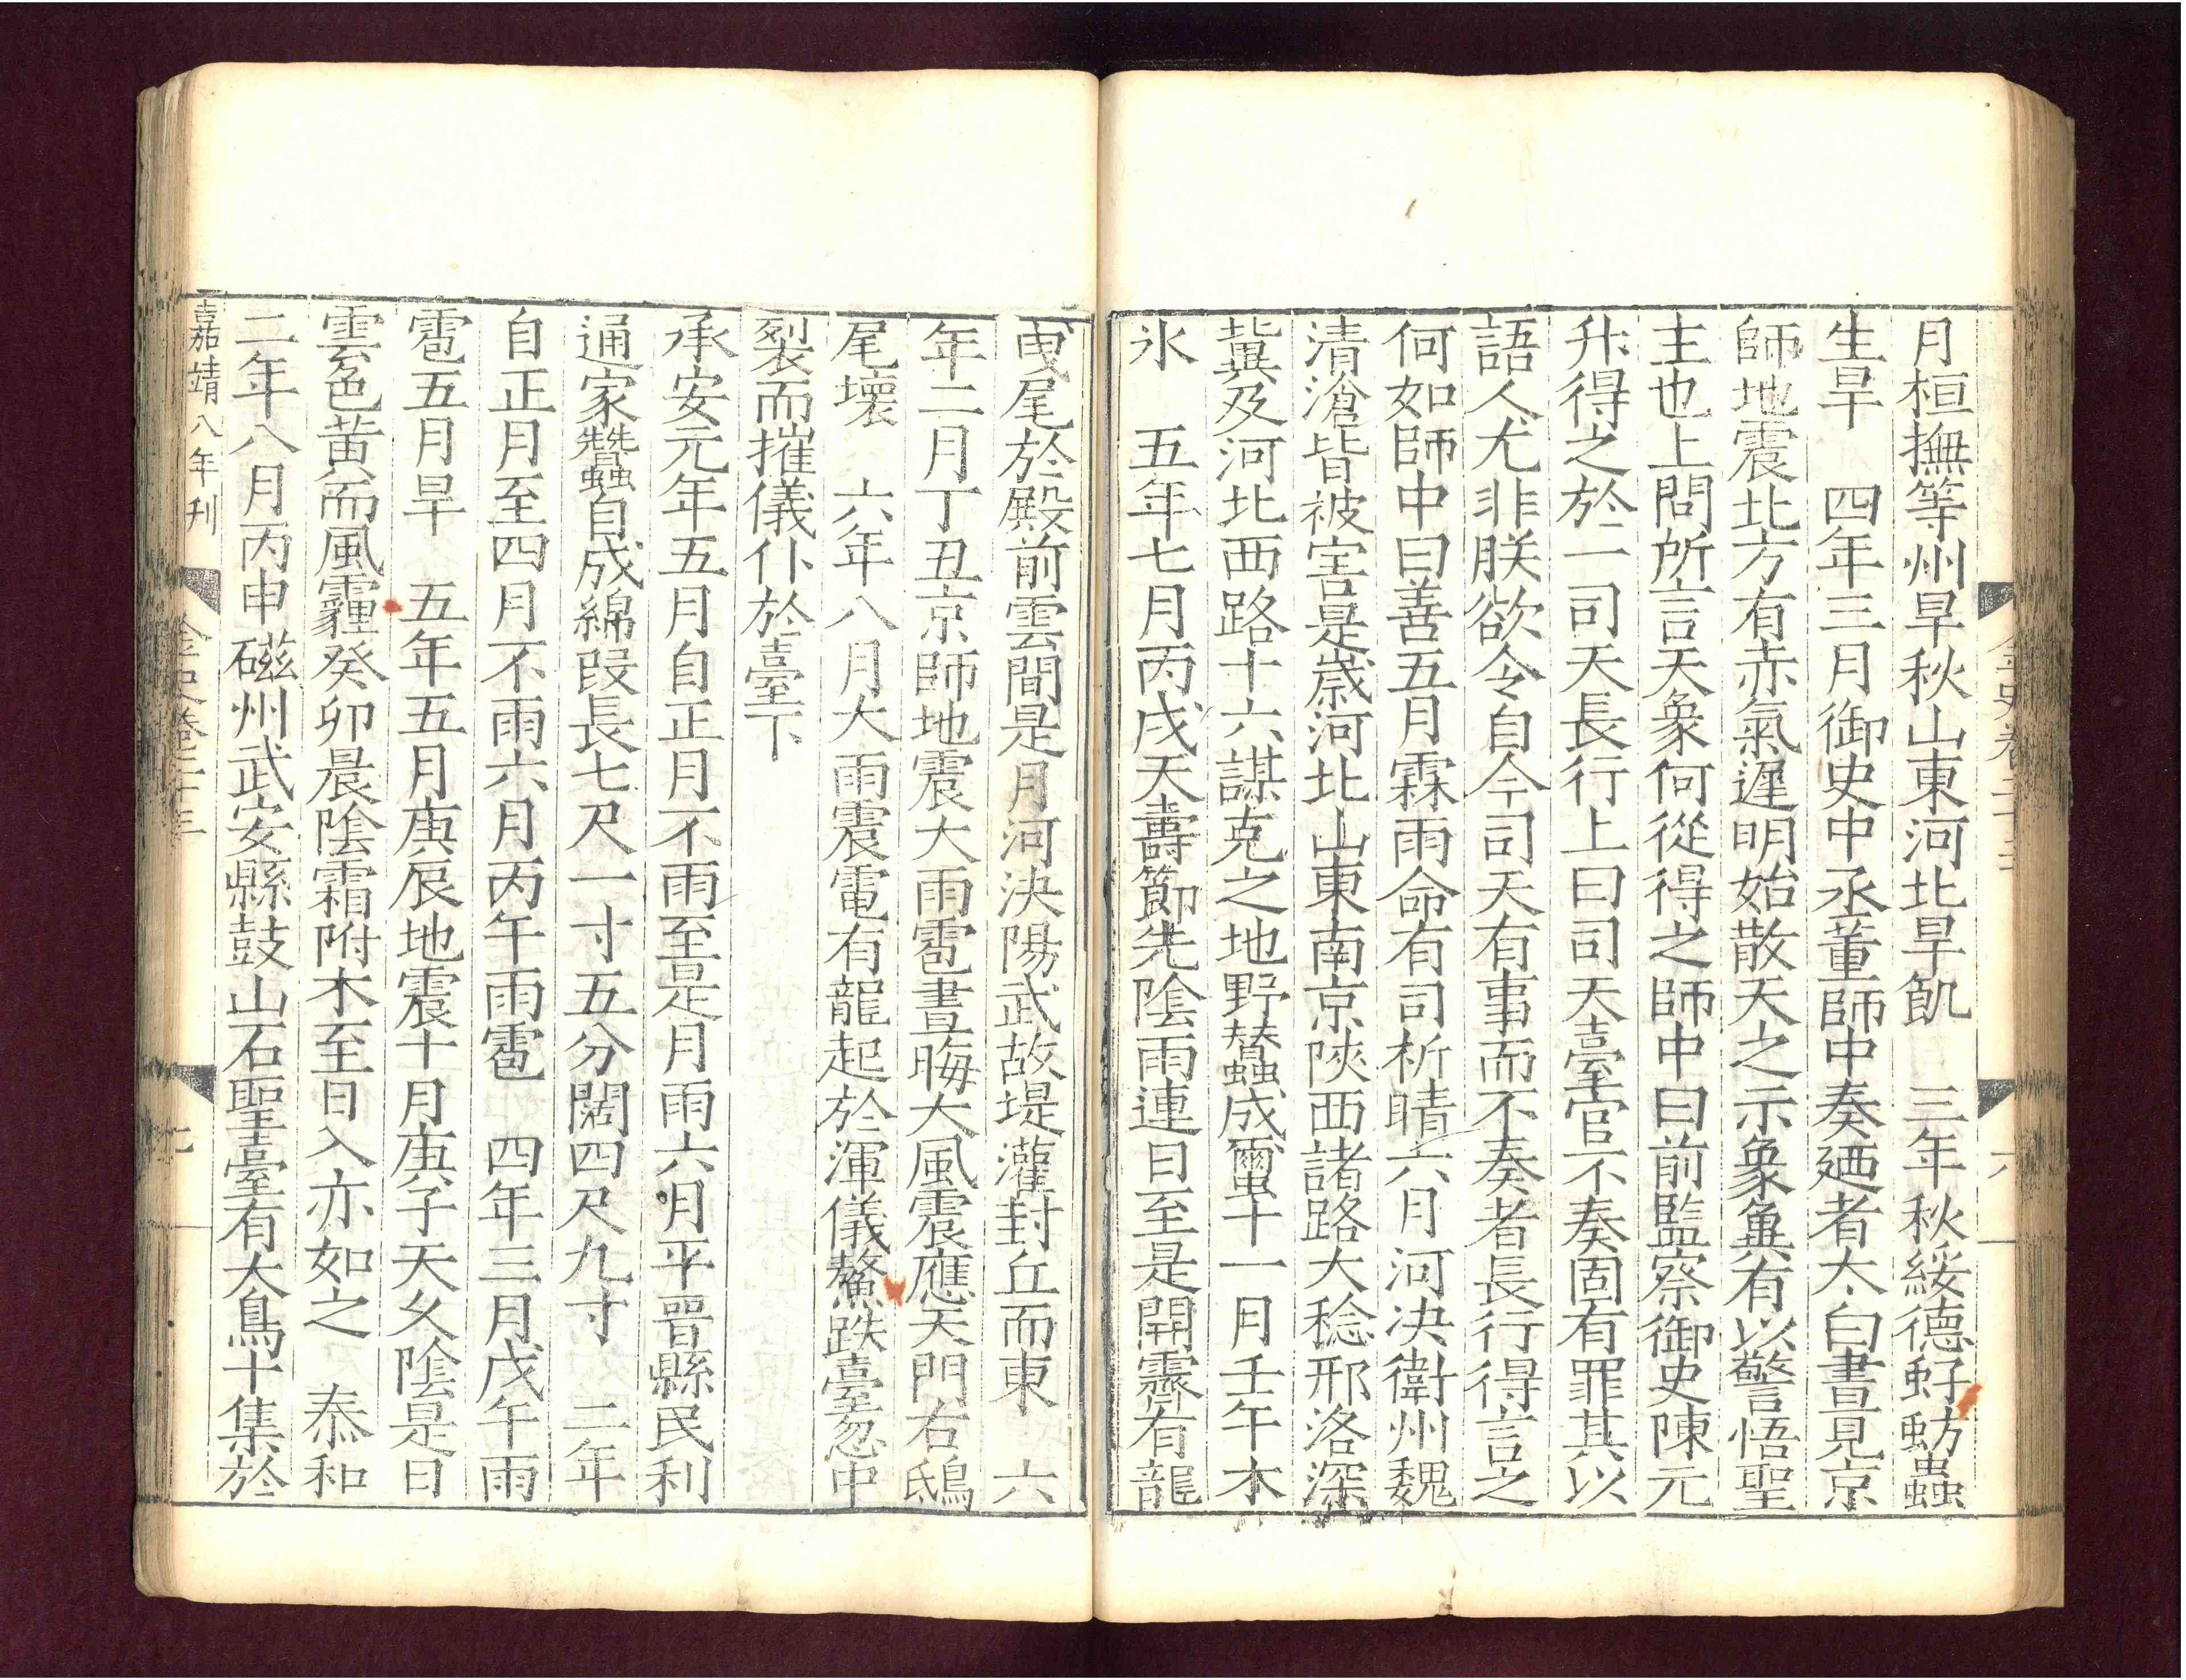 金史卷二十三
六
月桓撫等州旱秋山東河北旱飢　三年秋綏德虸蚄蟲
生旱　四年三月御史中丞董師中奏廼者太白晝見京
師地震北方有赤氣遲明始散天之示象兾有以警悟聖
主也上問所言天象何從得之師中曰前監察御史陳元
升得之於一司天長行上曰司天臺官不奏固有罪其以
語人尤非朕欲令自今司天有事而不奏者長行得言之
何如師中曰善五月霖雨命有司析晴六月河決衛州魏
清滄皆被害是嵗河北山東南京陝西諸路大稔邢洛深
冀及河北西路十六謀克之地野蠶成蠒十一月壬午木
氷　五年七月丙戌天壽節先陰雨連日至是開霽有龍
曳尾於殿前雲間是月河決陽武故堤灌封丘而東　六
年二月丁丑京師地震大雨雹晝晦大風震應天門右鴟
尾壞　六年八月大雨震電有龍起於渾儀鰲趺臺忽中
裂而摧儀仆於臺下
承安元年五月自正月不雨至是月雨六月平晉縣民利
通家蠶自成綿叚長七尺一寸五分闊四尺九寸　二年
自正月至四月不雨六月丙午雨雹　四年三月戊午雨
雹五月旱　五年五月庚辰地震十月庚子天久陰是日
雲色黄而風霾癸卯晨陰霜附木至日入亦如之　泰和
二年八月丙申磁州武安縣鼓山石聖臺有大鳥十集於
嘉靖八年刊
金史卷二十三
七